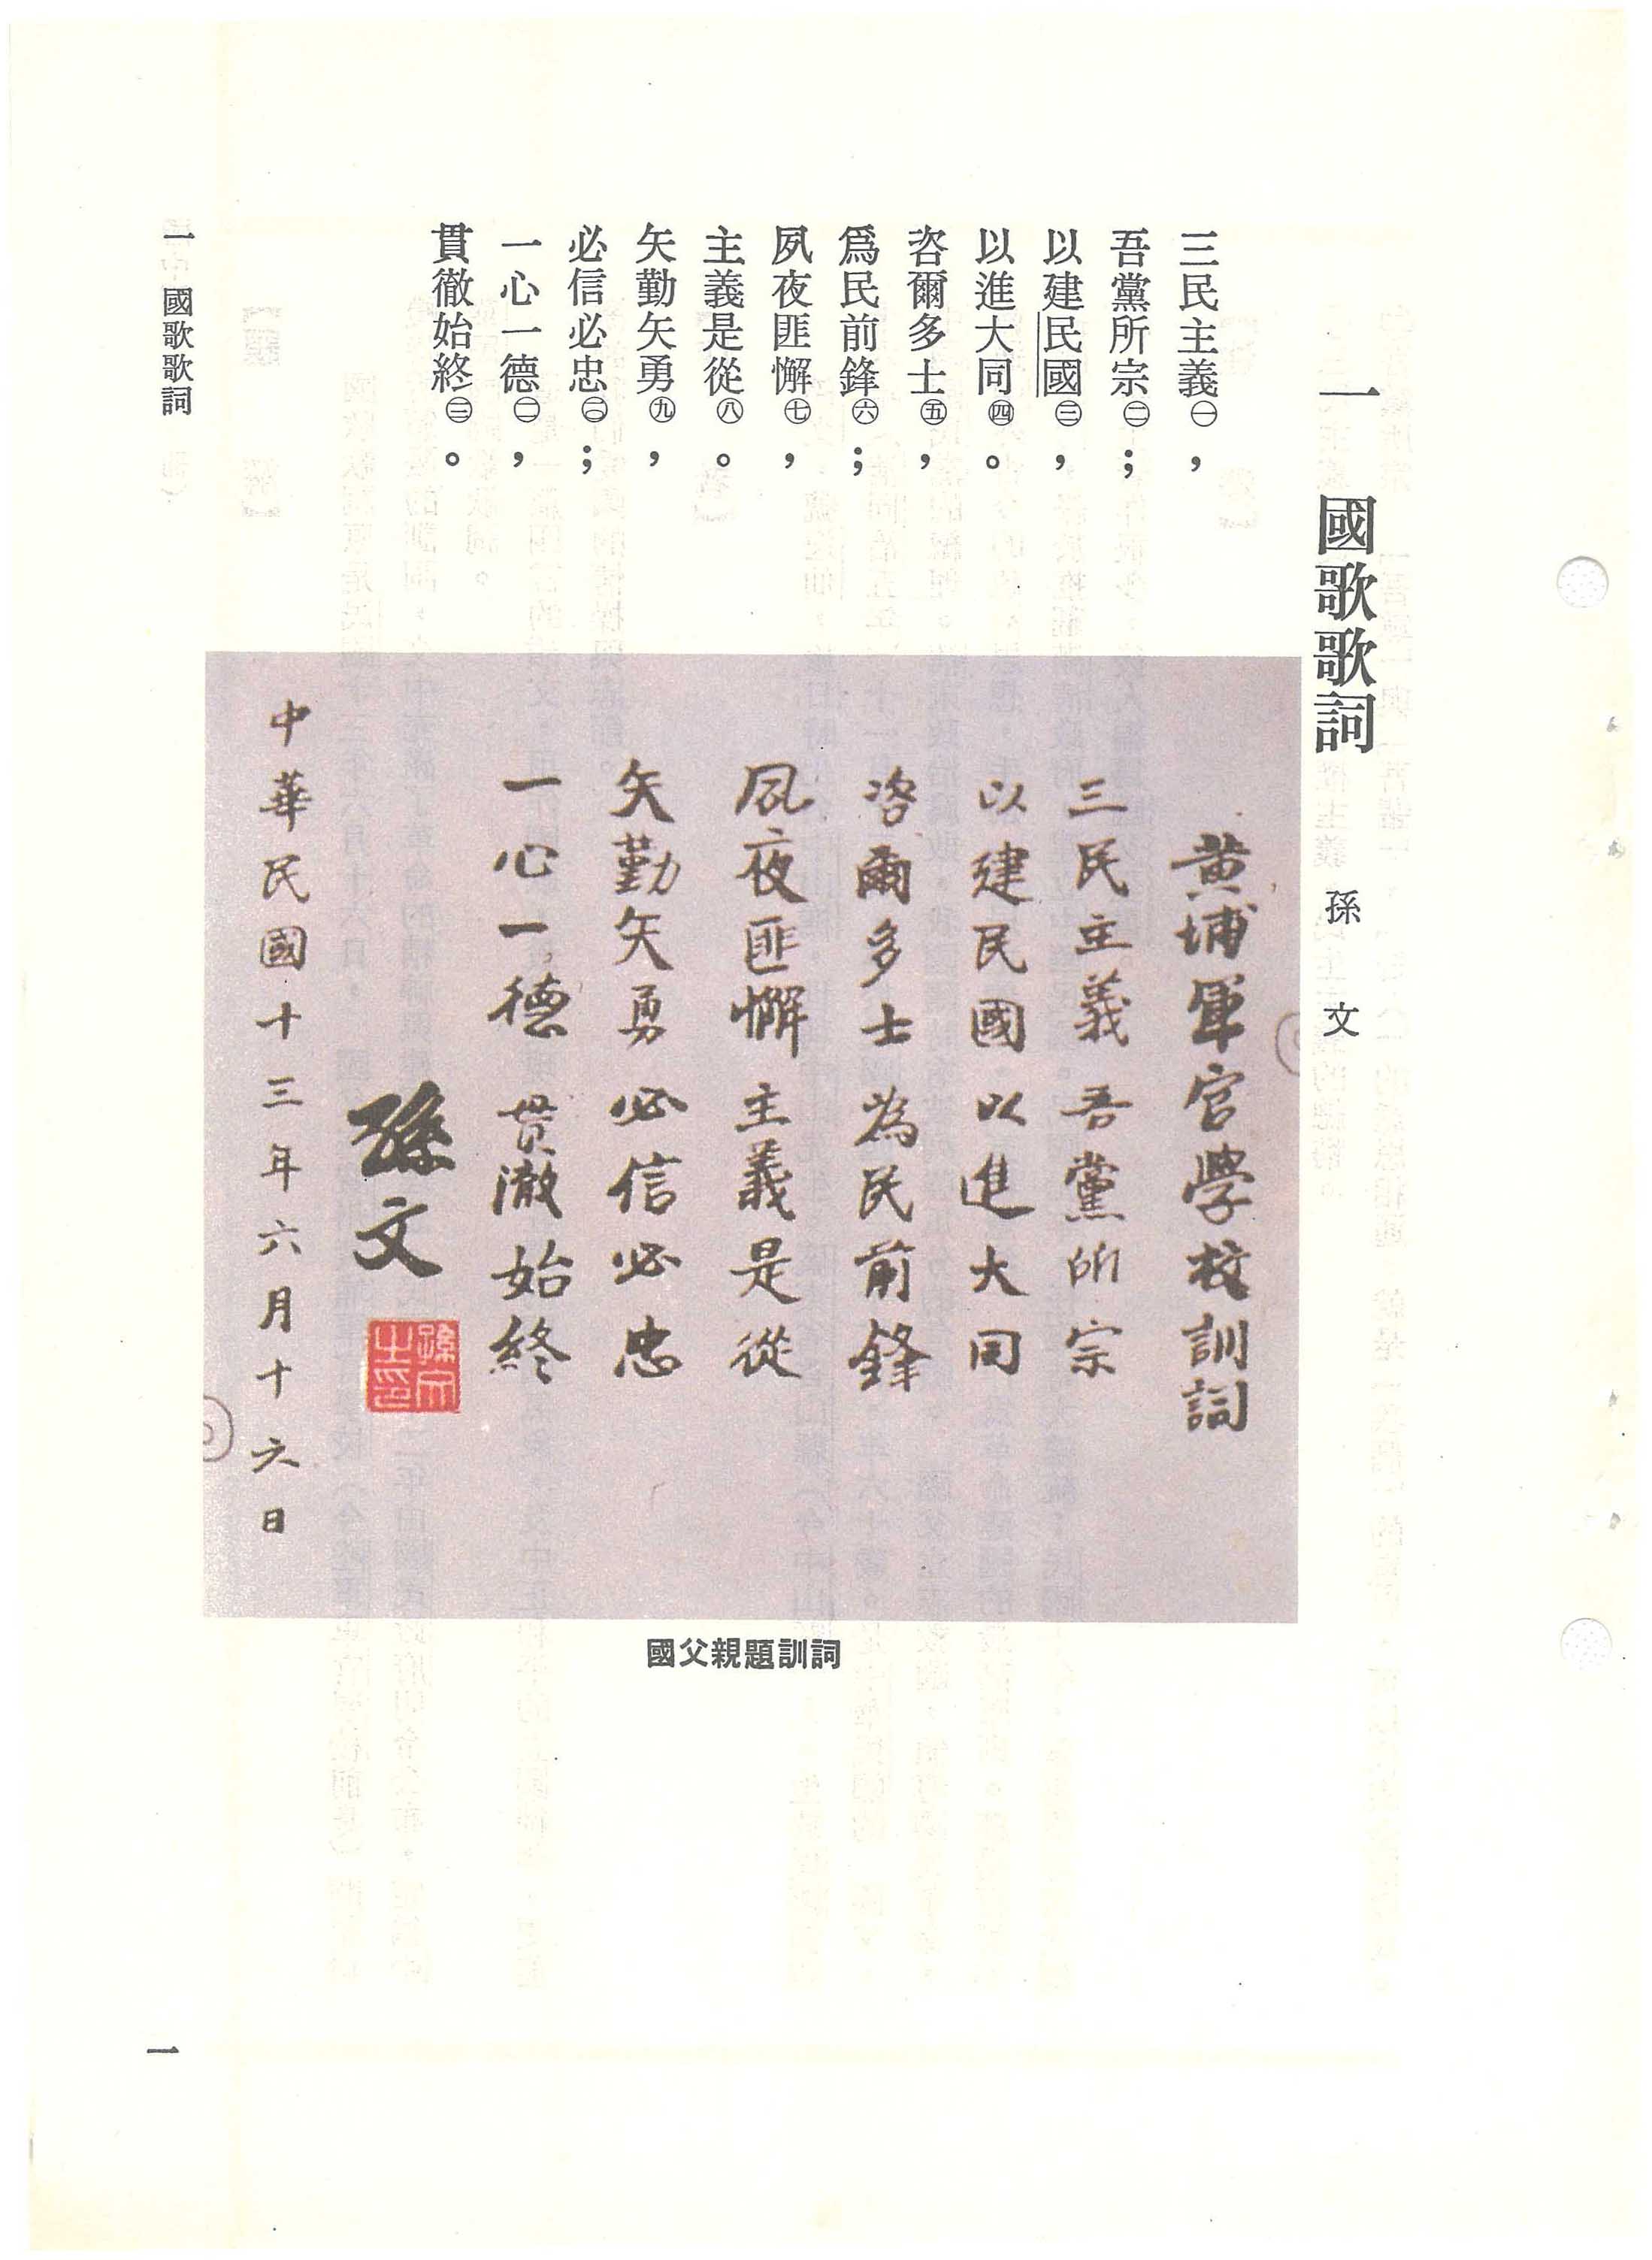 一 國歌歌詞 孫文
三民主義㊀，
吾黨所宗㊁；
以建民國㊂，
以進大同㊃。
咨爾多士㊄，
為民前鋒㊅；
夙夜匪懈㊆，
主義是從㊇。
矢勤矢勇㊈，
必信必忠(一〇)；
一心一德(一一)，
貫徹始終(一二)。
黃埔軍官學校訓詞
三民主義吾黨所宗
以建民國以進大同
咨爾多士為民前鋒
夙夜匪懈主義是從
矢勤矢勇必信必忠
一心一德貫澈始終
孫文
孫文之印
中華民國十三年六月十六日
國父親題訓詞
一 國歌歌詞
一